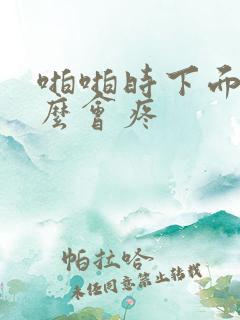 啪啪时下面
麼會疼
帕拉哈
未经同意禁止转载